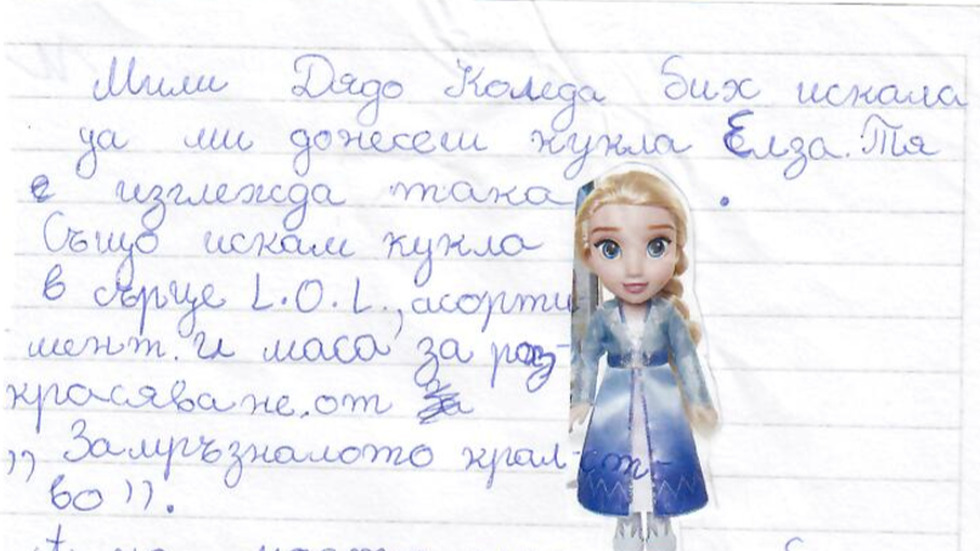 Мили Дядо Коледа бих искала
да ми донесеш кукла Елза. Тя
е изглежда така .
Също искам кукла
в сърце L.O.L., асорти-
мент. И маса за раз-
красяване. от за
„Замръзналото кралст-
во".